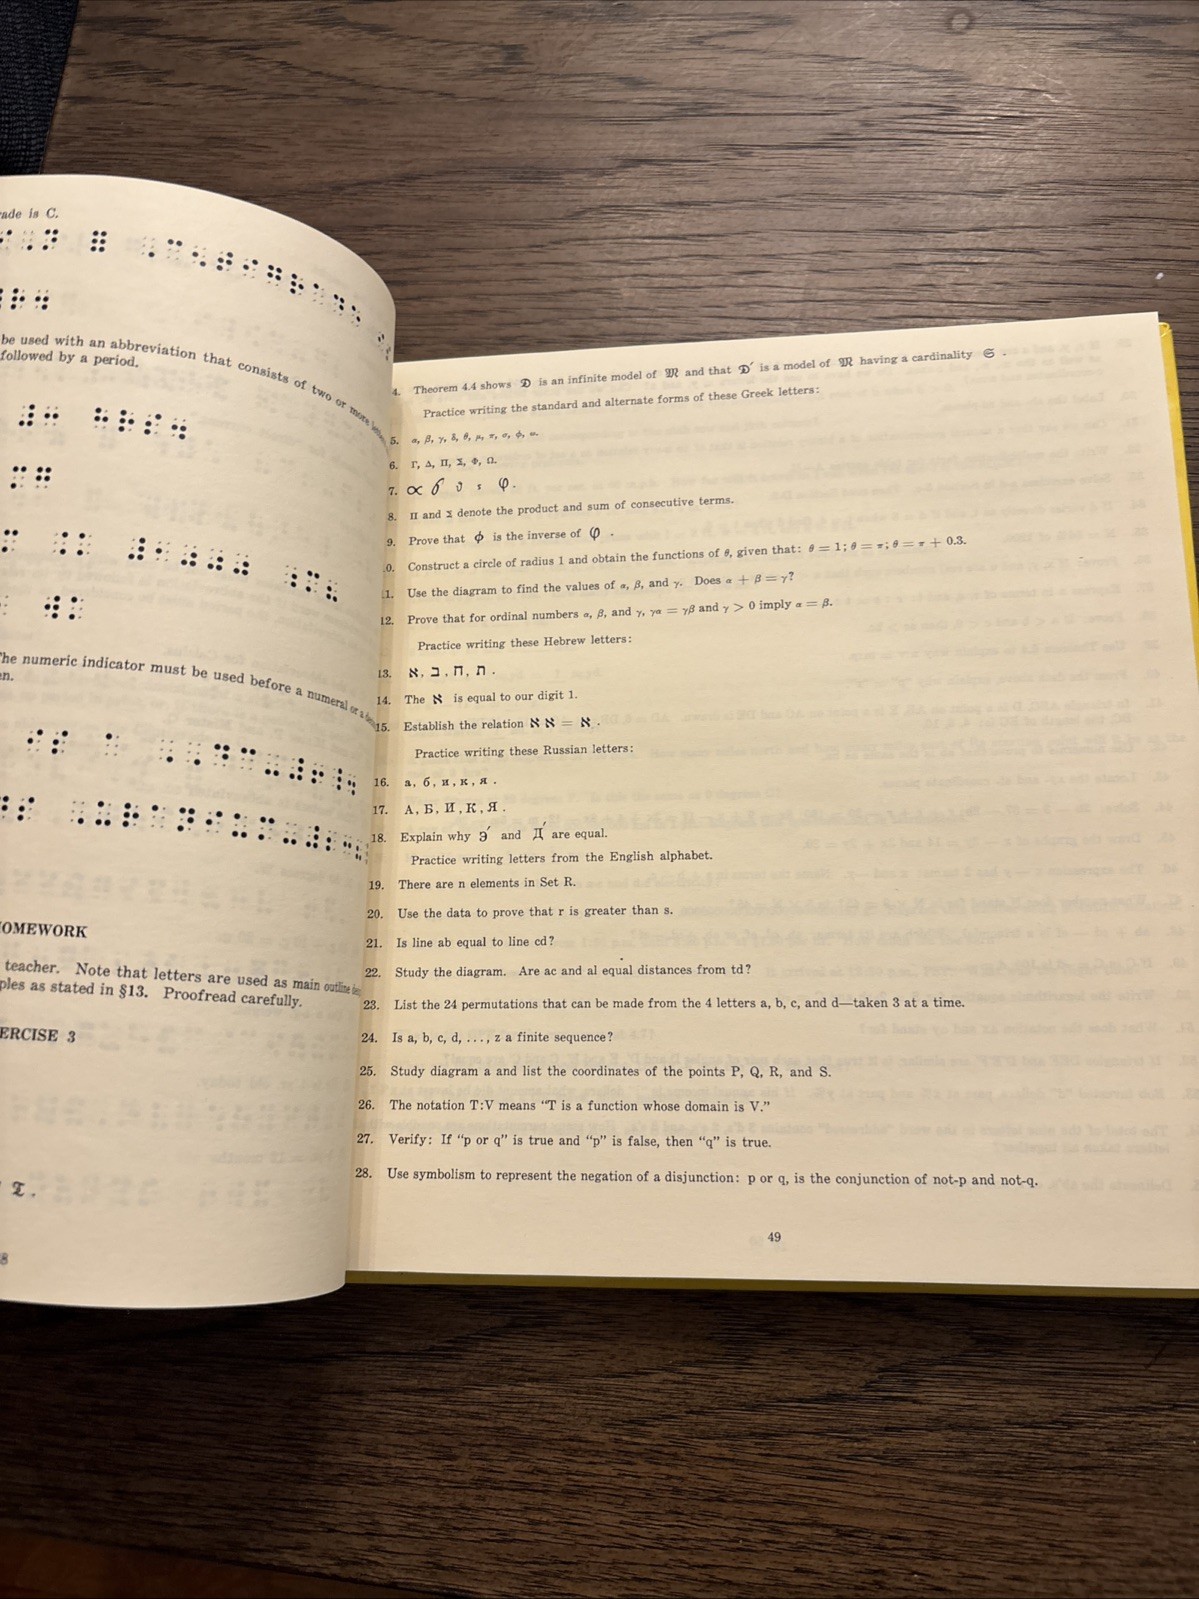 ade is C.
be used with an abbreviation that consists of two or more
followed by a period.
he numeric indicator must be used before a numeral or a
n.
OMEWORK
teacher. Note that letters are used as main outline
ples as stated in §13. Proofread carefully.
ERCISE 3
𝕿.
8
4. Theorem 4.4 shows 𝕯 is an infinite model of 𝕸 and that 𝕯′ is a model of 𝕸 having a cardinality 𝕾.
Practice writing the standard and alternate forms of these Greek letters:
5. α, β, γ, δ, θ, μ, π, σ, ϕ, ω.
6. Γ, Δ, Π, Σ, Φ, Ω.
7. ∝ ϑ ς φ.
8. Π and Σ denote the product and sum of consecutive terms.
9. Prove that ϕ is the inverse of φ.
0. Construct a circle of radius 1 and obtain the functions of θ, given that: θ = 1; θ = π; θ = π + 0.3.
1. Use the diagram to find the values of α, β, and γ. Does α + β = γ?
12. Prove that for ordinal numbers α, β, and γ, γα = γβ and γ > 0 imply α = β.
Practice writing these Hebrew letters:
13. א, ב, ח, ת.
14. The א is equal to our digit 1.
15. Establish the relation א א = א.
Practice writing these Russian letters:
16. а, б, и, к, я.
17. А, Б, И, К, Я.
18. Explain why Э′ and Д′ are equal.
Practice writing letters from the English alphabet.
19. There are n elements in Set R.
20. Use the data to prove that r is greater than s.
21. Is line ab equal to line cd?
22. Study the diagram. Are ac and al equal distances from td?
23. List the 24 permutations that can be made from the 4 letters a, b, c, and d—taken 3 at a time.
24. Is a, b, c, d, ..., z a finite sequence?
25. Study diagram a and list the coordinates of the points P, Q, R, and S.
26. The notation T:V means “T is a function whose domain is V.”
27. Verify: If “p or q” is true and “p” is false, then “q” is true.
28. Use symbolism to represent the negation of a disjunction: p or q, is the conjunction of not-p and not-q.
49